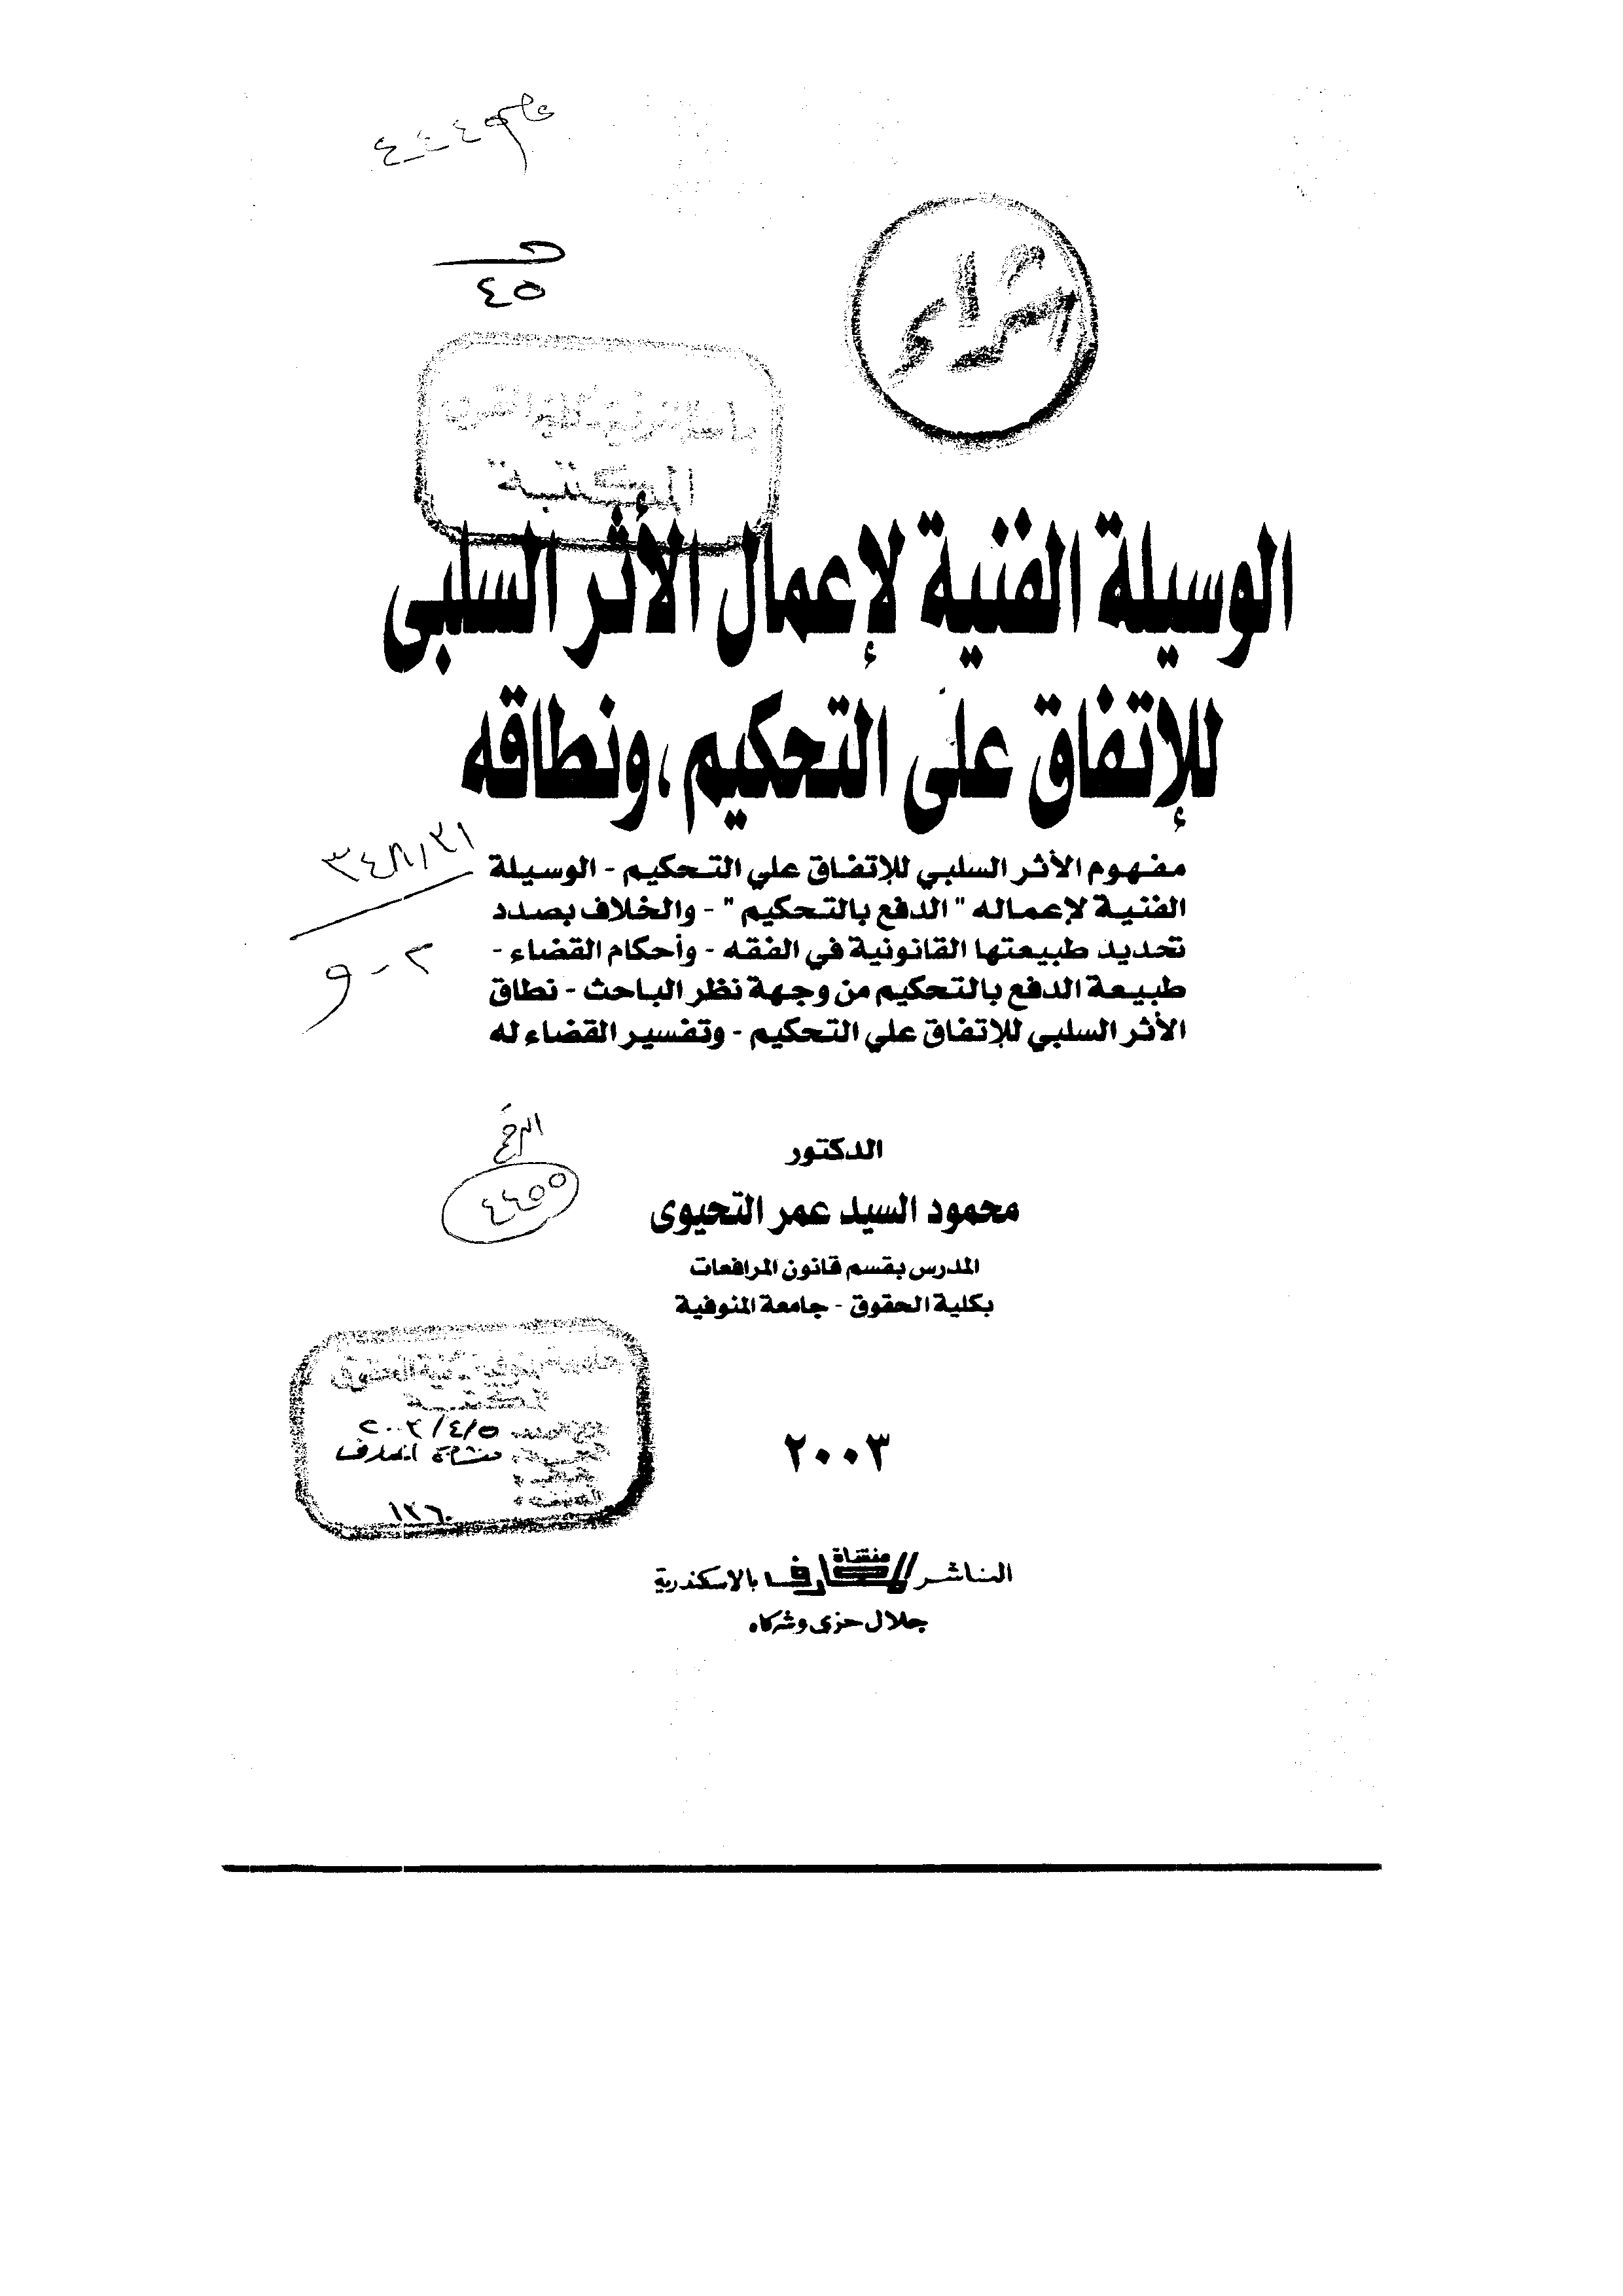 ٤٥
شراء
المكتبة
الوسيلة الفنية لإعمال الأثر السلبى
للإتفاق على التحكيم، ونطاقه
مفهوم الأثر السلبي للإتفاق علي التحكيم - الوسيلة
الفنية لإعماله " الدفع بالتحكيم " - والخلاف بصدد
تحديد طبيعتها القانونية في الفقه - وأحكام القضاء -
طبيعة الدفع بالتحكيم من وجهة نظر الباحث - نطاق
الأثر السلبي للإتفاق علي التحكيم - وتفسير القضاء له
الدكتور
محمود السيد عمر التحيوى
المدرس بقسم قانون المرافعات
بكلية الحقوق - جامعة المنوفية
٢٠٠٣
الناشر منشأة المعارف بالاسكندرية
جلال حزى وشركاه